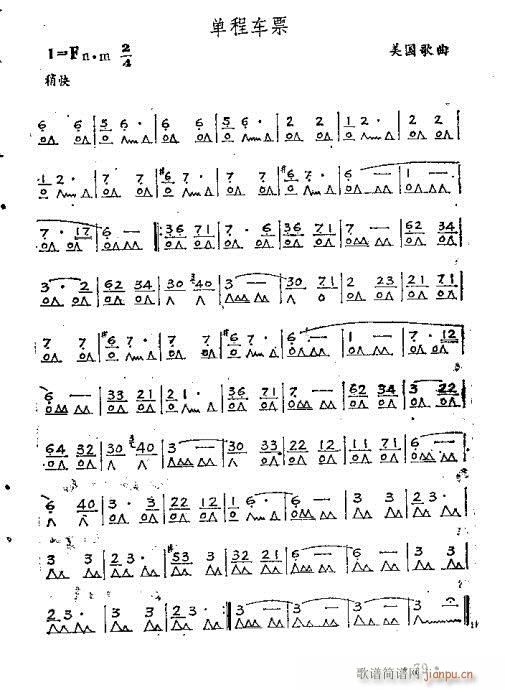 单程车票
1=F n.m 2/4
美国歌曲
稍快
6 6 | 5 6 · | 6 6 | 5 6 · | 2 2 | 1 2 · | 2 2
1 2 · | 7 7 | #6 7 · | 7 7 | #6 7 · | 6 — | 1 —
7 · 17 | 6 — |: 36 71 | 7 · 6 | 36 71 | 7 — | 62 34
3 · 2 | 62 34 | 30 40 | 3 — | 30 71 | 2 23 | 21 71
7 7 | #6 7 · | 7 7 | #6 7 · | 6 — | 1 — | 7 · 12
6 — | 33 21 | 21 · | 36 71 | 7 — | 62 34 | 3 22
64 32 | 30 40 | 3 — | 30 33 | 22 12 | 11 71 | 6 —
6 40 | 3 · 3 | 22 12 | 10 6 | 6 — | 3 3 | 23 ·
3 3 | 23 · | #53 3 | 32 21 | 6 — | 6 — | 3 3
23 · | 3 3 | 23 · :| 3 — | 3 — | 3 — | 3
· 79 ·
歌谱简谱网
jianpu.cn